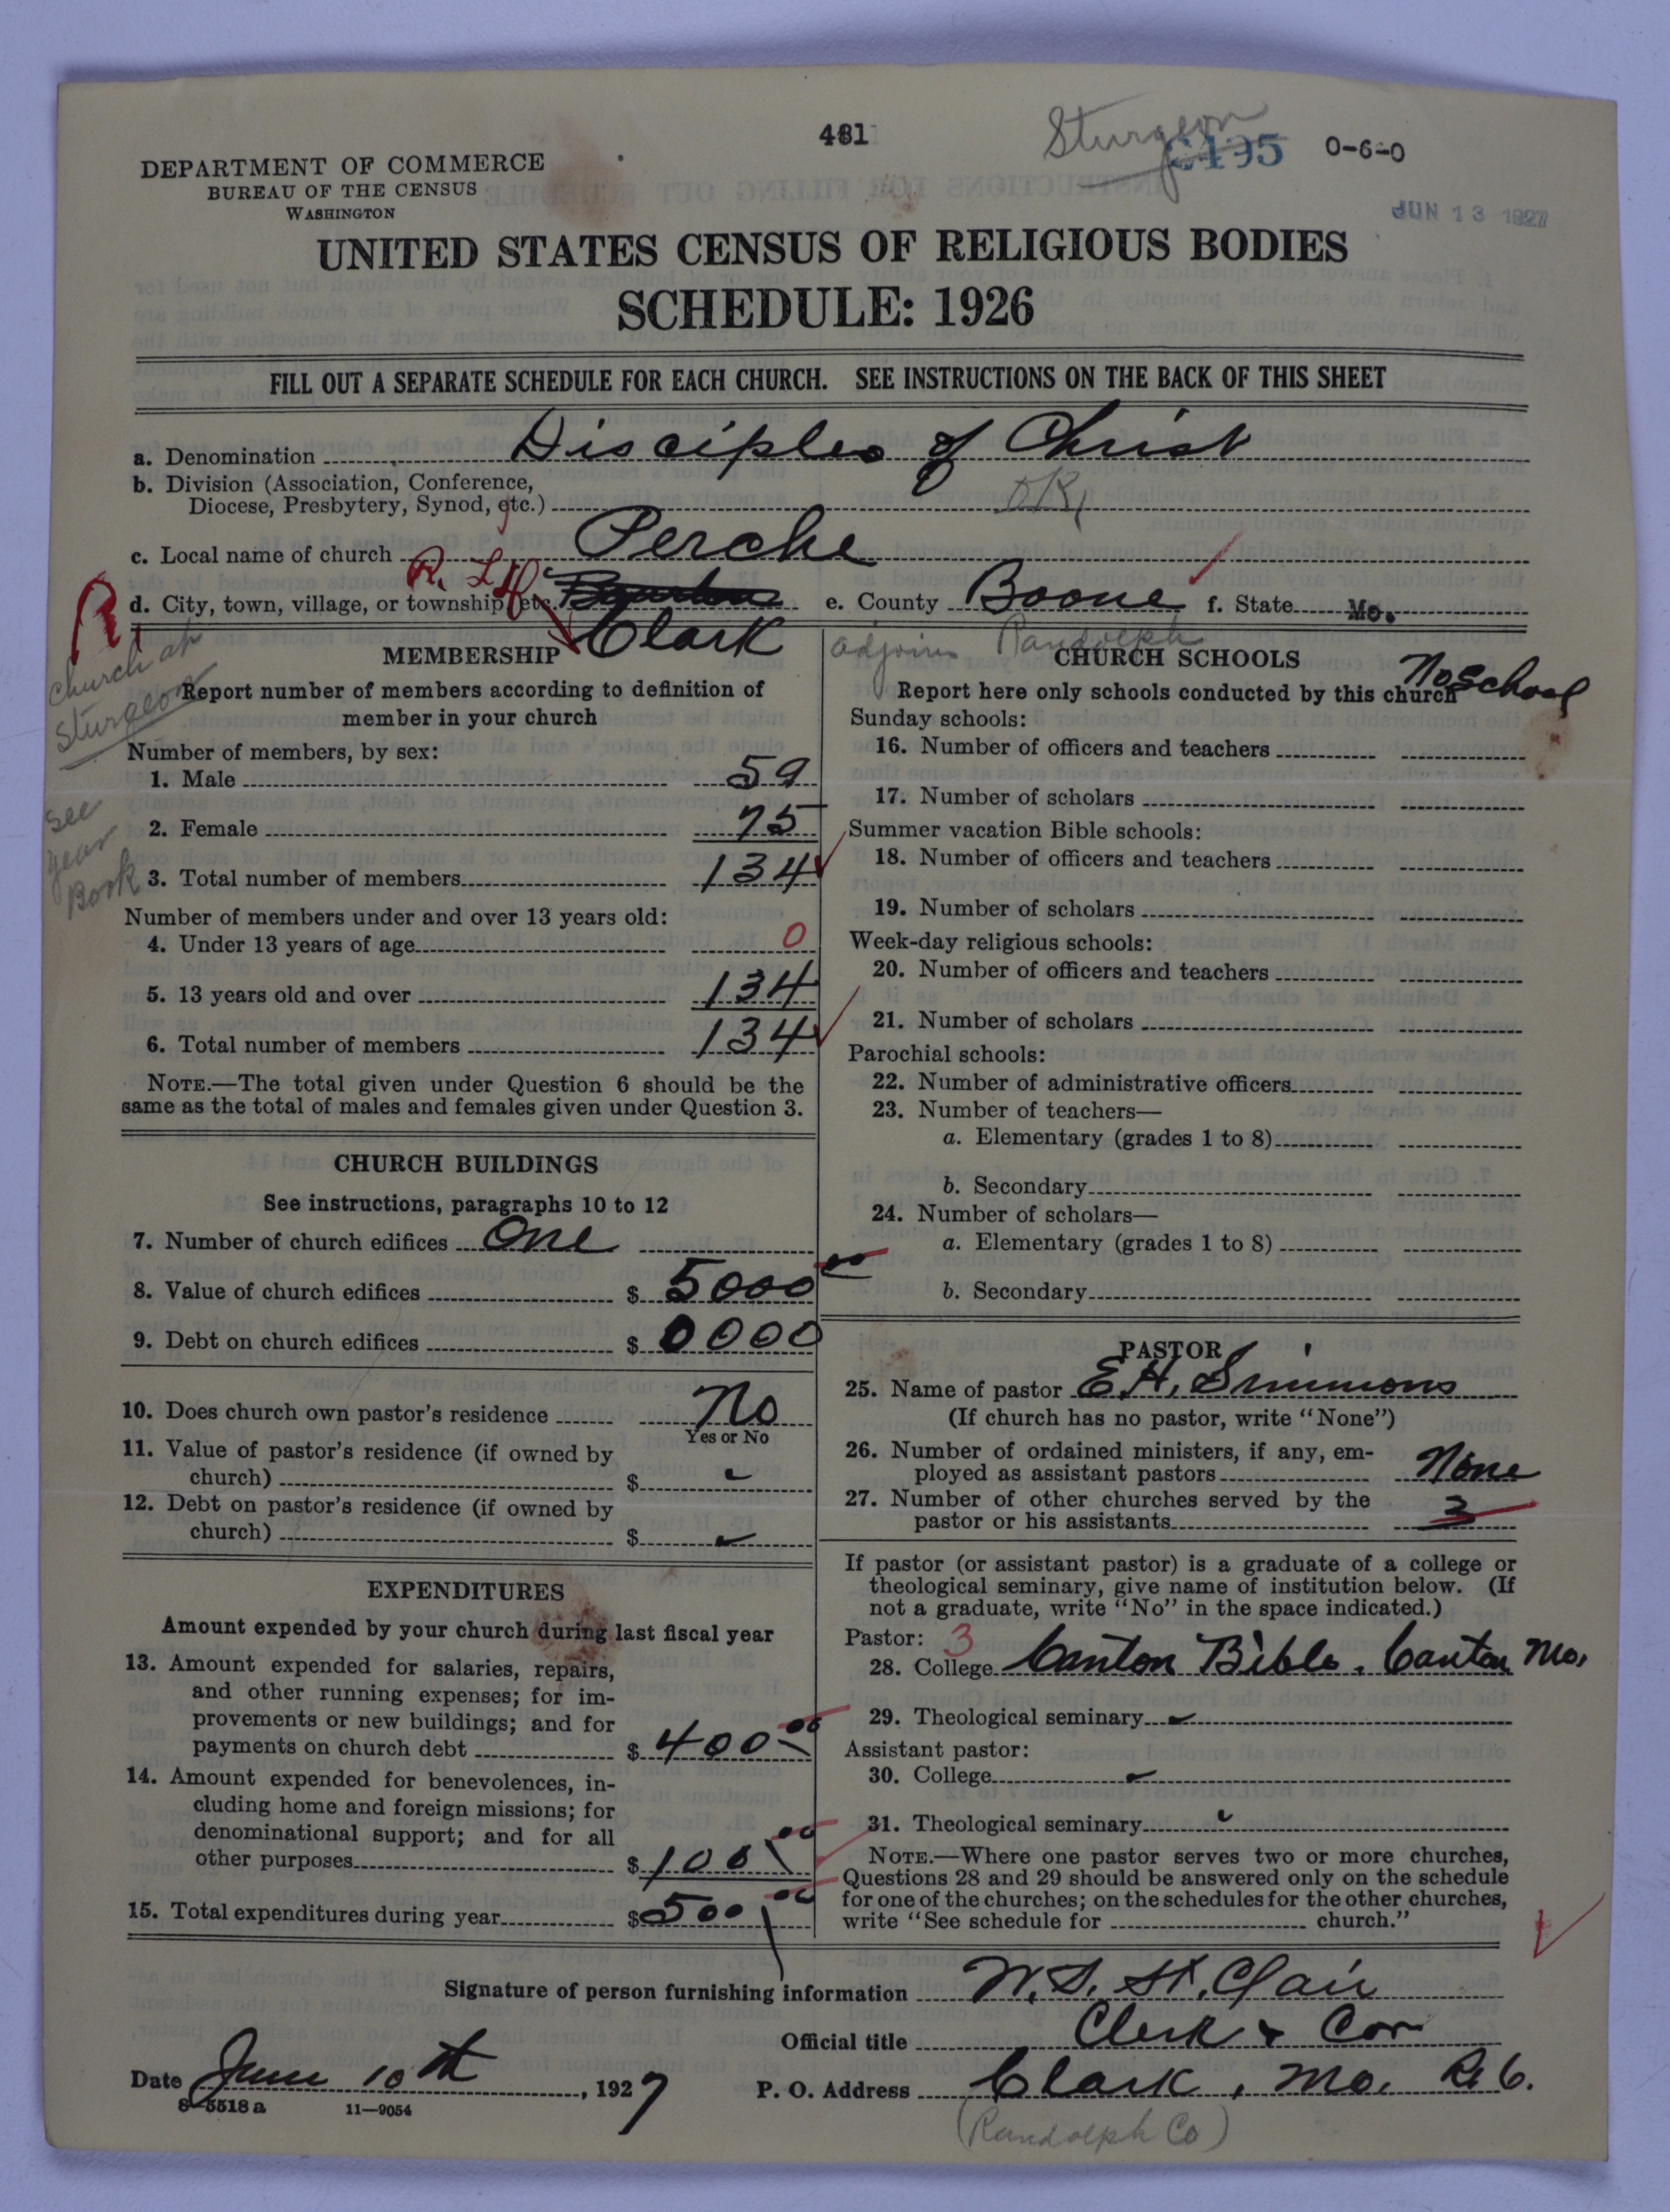 481
Sturgeon
C195
0-6-0
DEPARTMENT OF COMMERCE
BUREAU OF THE CENSUS
WASHINGTON
JUN 13 1927
UNITED STATES CENSUS OF RELIGIOUS BODIES
SCHEDULE: 1926
FILL OUT A SEPARATE SCHEDULE FOR EACH CHURCH. SEE INSTRUCTIONS ON THE BACK OF THIS SHEET
a. Denomination Disciples of Christ
b. Division (Association, Conference,
Diocese, Presbytery, Synod, etc.) OK
c. Local name of church Perche
d. City, town, village, or township, etc. Clark e. County Boone f. State Mo.
R
church at
Sturgeon
see
year
Book
adjoins Randolph
MEMBERSHIP
Report number of members according to definition of
member in your church
Number of members, by sex:
1. Male 59
2. Female 75
3. Total number of members 134
Number of members under and over 13 years old:
4. Under 13 years of age 0
5. 13 years old and over 134
6. Total number of members 134
NOTE.—The total given under Question 6 should be the
same as the total of males and females given under Question 3.
CHURCH BUILDINGS
See instructions, paragraphs 10 to 12
7. Number of church edifices One
8. Value of church edifices $ 5000 00
9. Debt on church edifices $ 0000
10. Does church own pastor's residence No
Yes or No
11. Value of pastor's residence (if owned by
church) $
12. Debt on pastor's residence (if owned by
church) $
EXPENDITURES
Amount expended by your church during last fiscal year
13. Amount expended for salaries, repairs,
and other running expenses; for im-
provements or new buildings; and for
payments on church debt $ 400 00
14. Amount expended for benevolences, in-
cluding home and foreign missions; for
denominational support; and for all
other purposes $ 100 00
15. Total expenditures during year $ 500 00
CHURCH SCHOOLS
Report here only schools conducted by this church No School
Sunday schools:
16. Number of officers and teachers
17. Number of scholars
Summer vacation Bible schools:
18. Number of officers and teachers
19. Number of scholars
Week-day religious schools:
20. Number of officers and teachers
21. Number of scholars
Parochial schools:
22. Number of administrative officers
23. Number of teachers—
a. Elementary (grades 1 to 8)
b. Secondary
24. Number of scholars—
a. Elementary (grades 1 to 8)
b. Secondary
PASTOR
25. Name of pastor E. H. Simmons
(If church has no pastor, write "None")
26. Number of ordained ministers, if any, em-
ployed as assistant pastors None
27. Number of other churches served by the
pastor or his assistants 3
If pastor (or assistant pastor) is a graduate of a college or
theological seminary, give name of institution below. (If
not a graduate, write "No" in the space indicated.)
Pastor: 3
28. College Canton Bible. Canton Mo.
29. Theological seminary
Assistant pastor:
30. College
31. Theological seminary
NOTE.—Where one pastor serves two or more churches,
Questions 28 and 29 should be answered only on the schedule
for one of the churches; on the schedules for the other churches,
write "See schedule for church."
Signature of person furnishing information W. S. St. Clair
Official title Clerk & Cor
Date June 10th, 1927 P. O. Address Clark, Mo. R 6.
8-5518 a 11—9054
(Randolph Co)